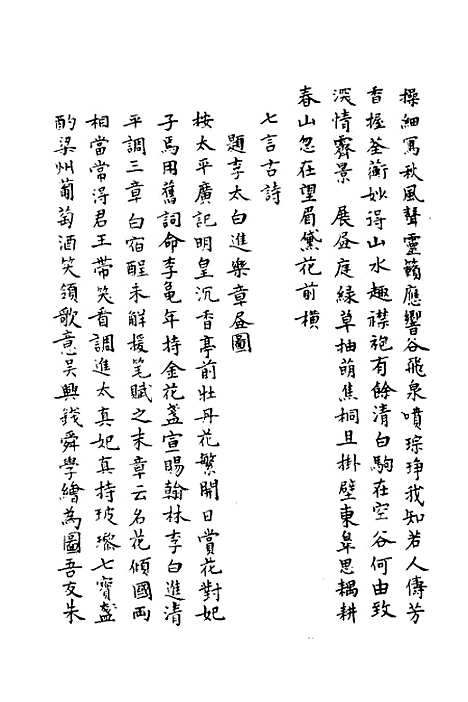 操細寫秋風聲靈籟應響谷飛泉噴琮琤我知若人傳芳
香握荃蘅妙得山水趣襟袍有餘清白駒在空谷何由致
深情霽景　展昼庭綠草抽萌焦桐且掛壁東臯思耦耕
春山忽在望眉黛花前橫
七言古詩
題李太白進樂章昼圖
按太平廣記明皇沉香亭前牡丹花繁開日賞花對妃
子焉用舊詞命李龜年持金花盞宣賜翰林李白進清
平調三章白宿酲未解援笔賦之末章云名花傾國両
相當常得君王帶笑看調進太真妃真持玻瓈七寶盞
酌梁州葡萄酒笑領歌意吳興錢舜學繪為圖吾友朱